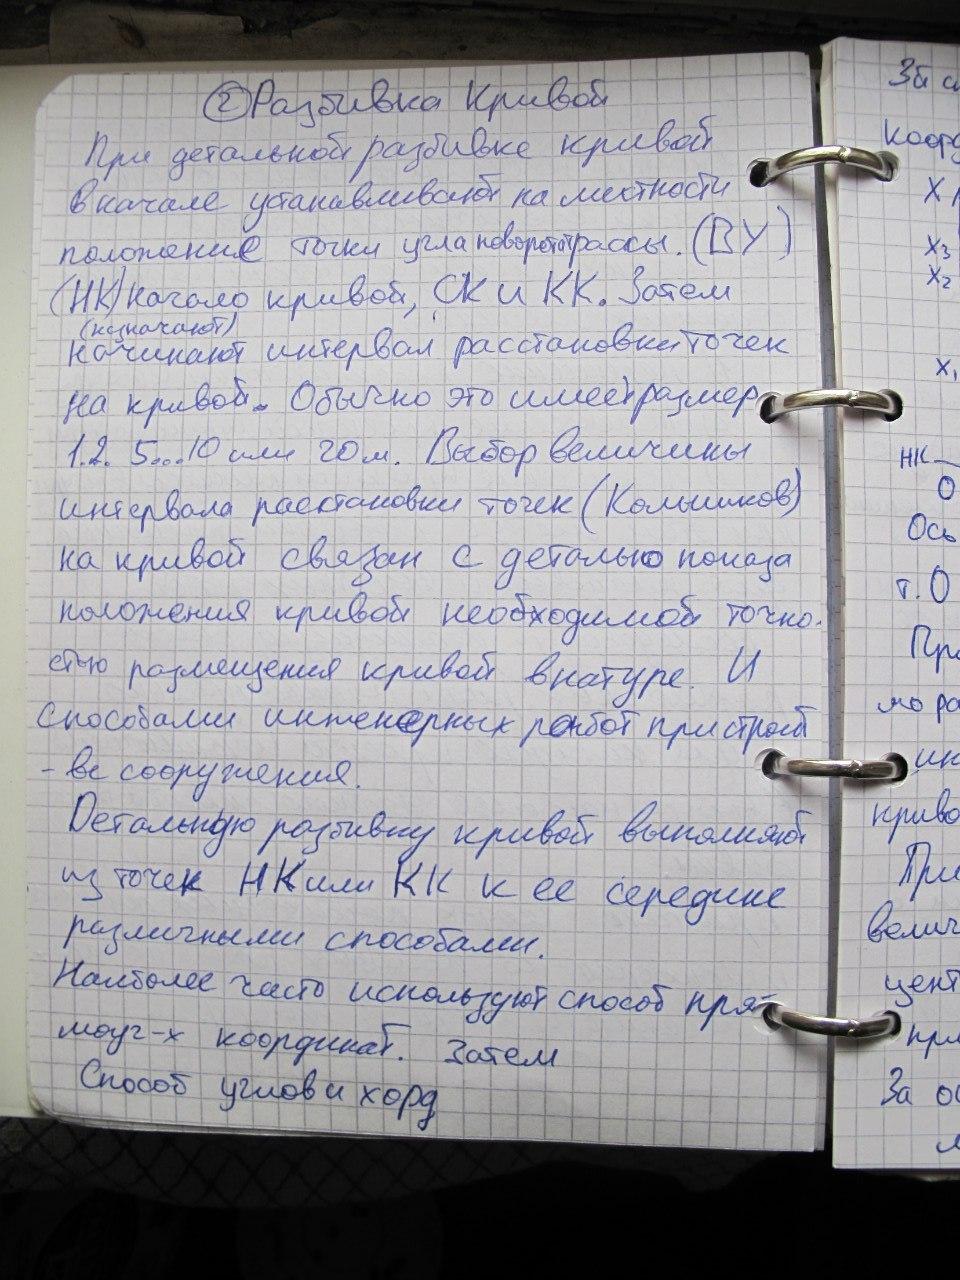 ② Разбивка Кривой
При детальной разбивке кривой
вначале устанавливают на местности
положение точки угла поворота трассы. (ВУ)
(НК) начало кривой, СК и КК. Затем
(назначают)
начинают интервал расстановки точек
на кривой. Обычно это имеет размер
1.2. 5...10 или 20 м. Выбор величины
интервала расстановки точек (Колышков)
на кривой связан с деталью показа
положения кривой необходимой точно-
стью размещения кривой в натуре. И
способами инженерных работ при строит
-ве сооружения.
Детальную разбивку кривой выполняют
из точек НК или КК к ее середине
различными способами.
Наиболее часто используют способ пря-
моуг-х координат. Затем
Способ углов и хорд
Коорд
X
X3
X2
X1
НК
О
Ось
т. О
При
мо ра
ин
криво
При
велич
цент
при
За ос